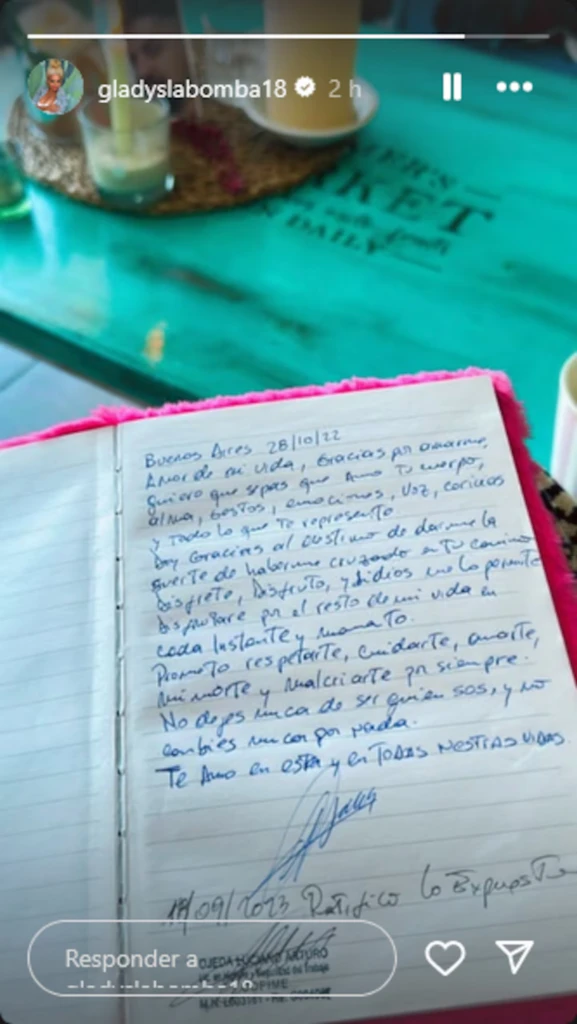 gladyslabomba18 2 h
MER'S
RKET
DAILY
Buenos Aires 28/10/22
Amor de mi vida, Gracias por amarme,
quiero que sepas que Amo Tu cuerpo,
alma, gestos, emociones, Voz, caricias
y Todo lo que Te representa
Doy Gracias al destino de darme la
suerte de haberme cruzado en Tu camino
Disfrete, Disfruto, y si dios me lo permite
disfrutare por el resto de mi vida en
cada Instante y momento.
Prometo respetarte, cuidarte, amarte,
mimarte y malcriarte por siempre.
No dejes nunca de ser quien sos, y no
cambies nunca por nada.
Te Amo en esta y en TODAS NESTRAS VIDAS.
18/09/2023 Ratifico lo Expuesto
OJEDA LUCIANO ARTURO
Responder a
gladyslabomba18